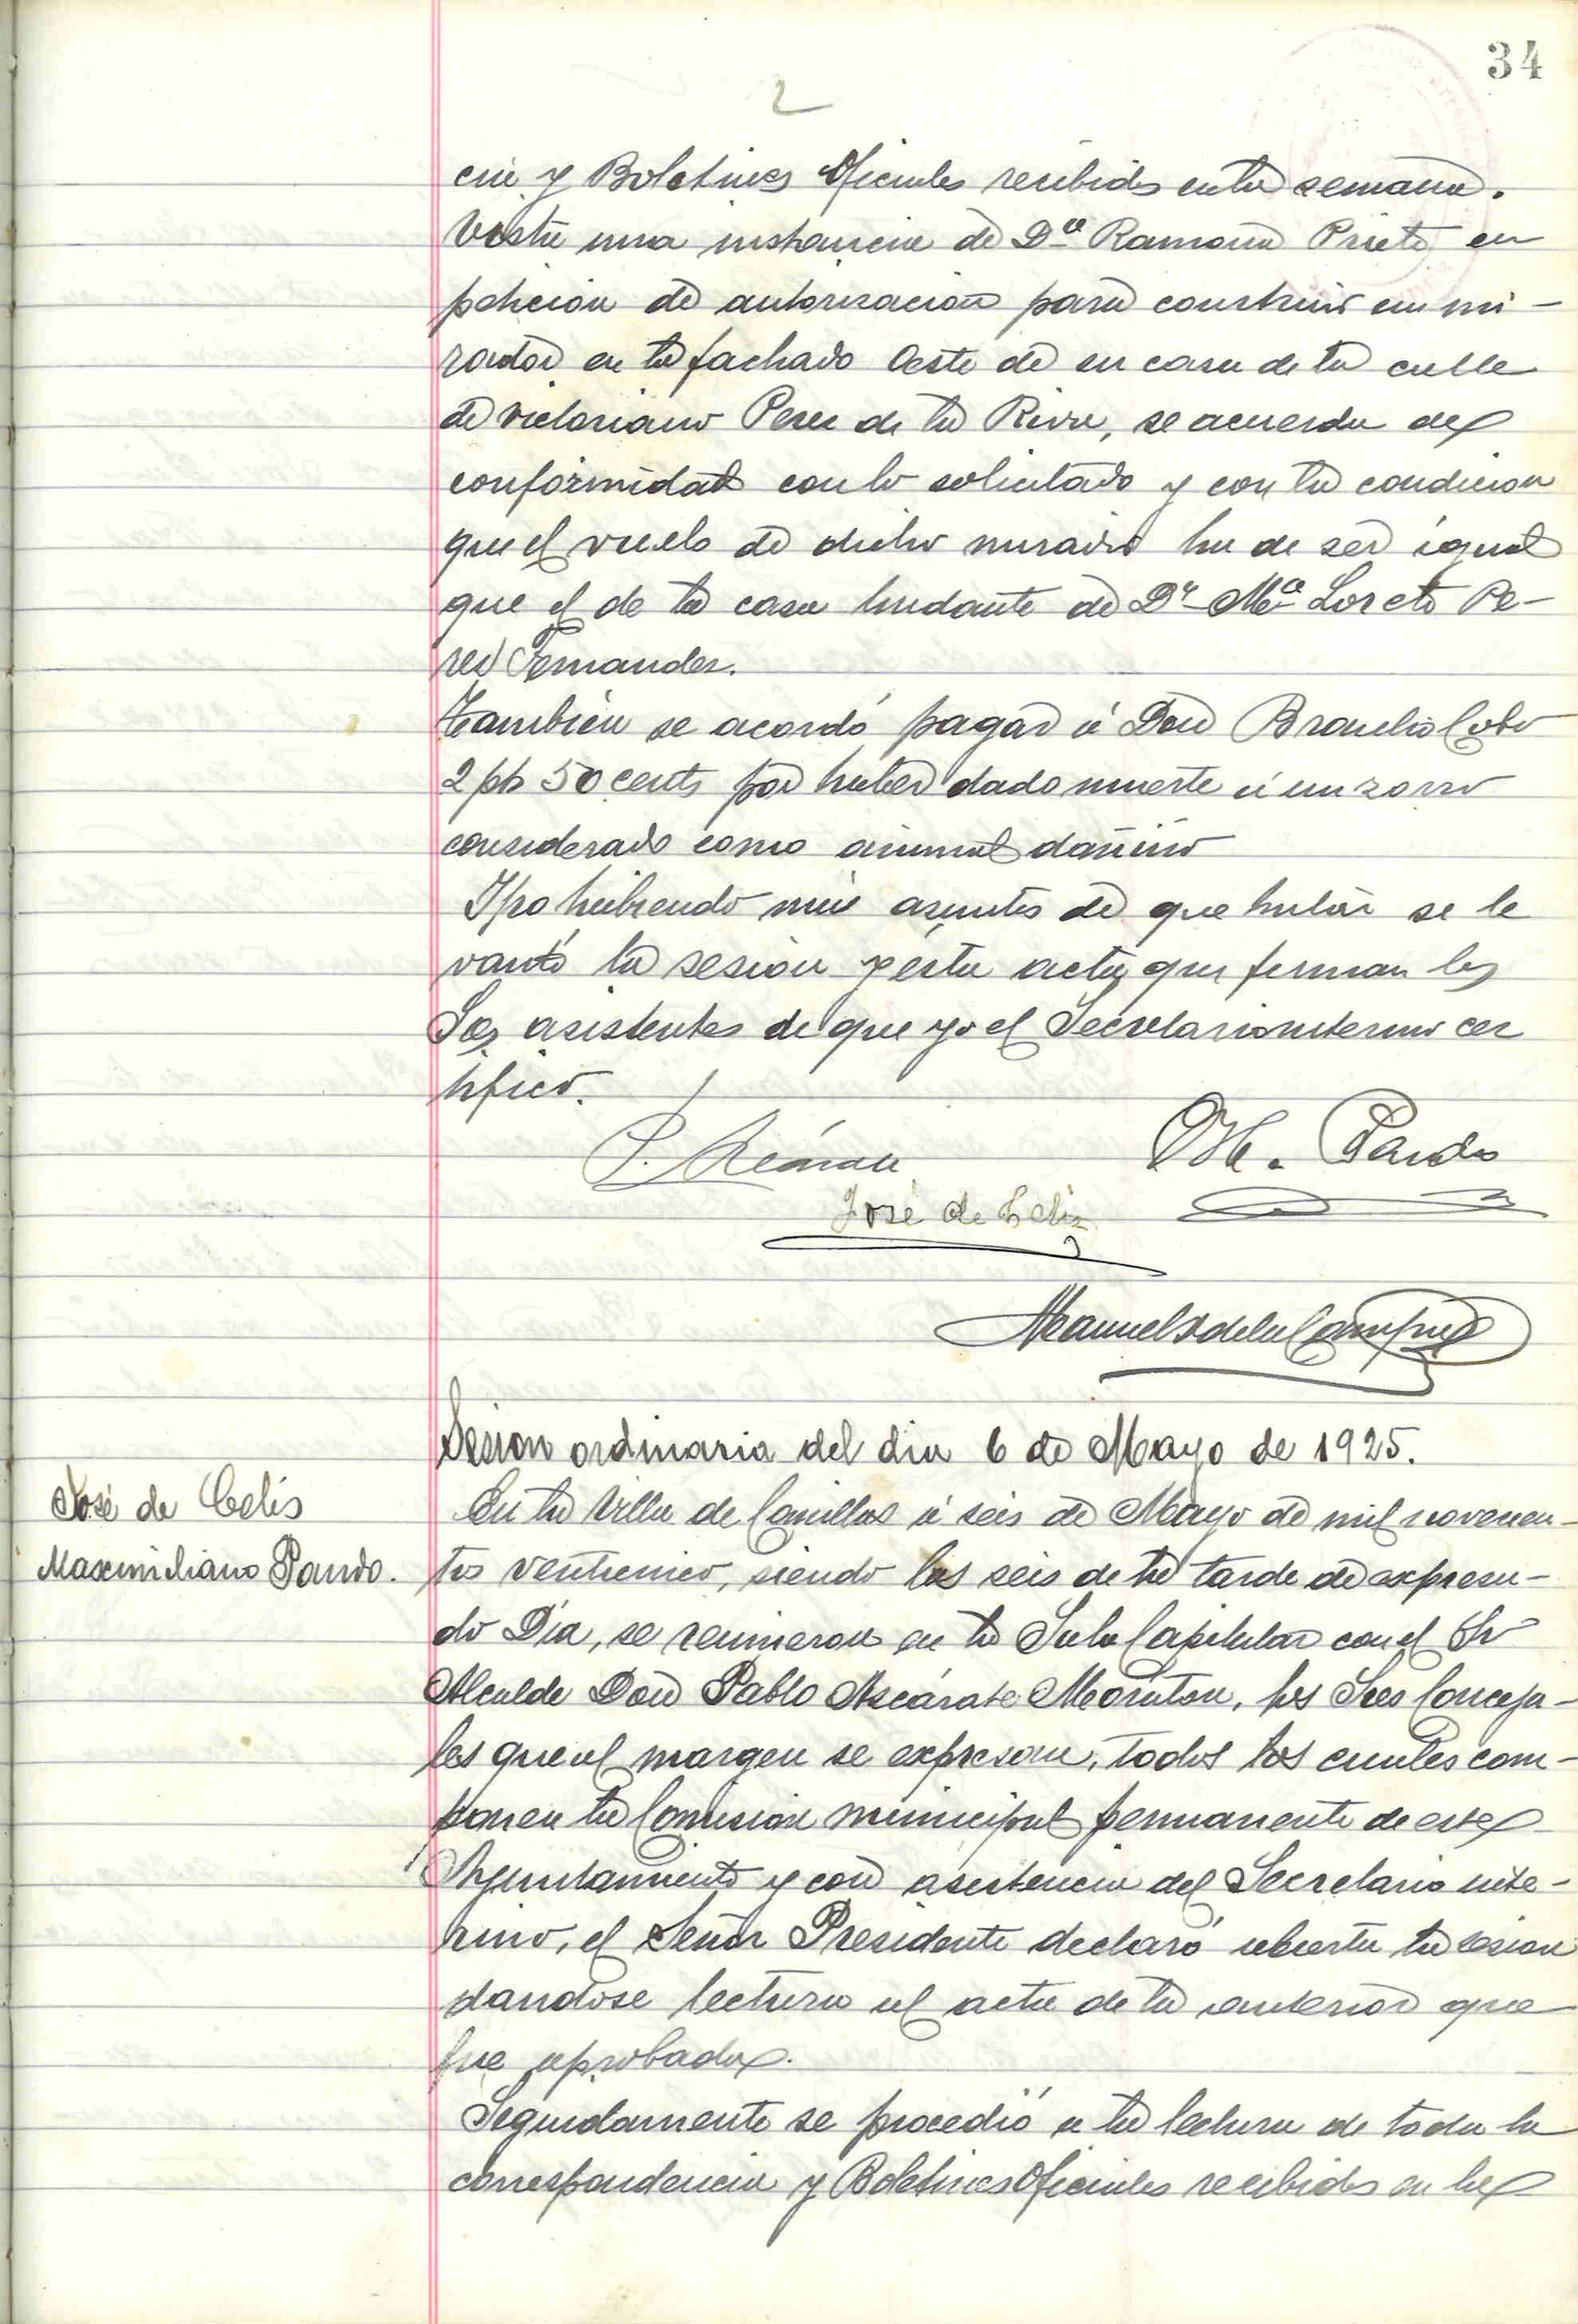 34
2
cia y Boletines Oficiales recibidos en la semana.
Vista una instancia de Dª Ramona Prieto en
peticion de autorizacion para construir un mi-
rador en la fachada Oeste de su casa de la calle
de Victoriano Perez de la Riva, se acuerda de
conformidad con lo solicitado y con la condicion
que el vuelo de dicho mirador ha de ser igual
que el de la casa lindante de Dª Mª Loreto Pe-
rez Fernandez.
Tambien se acordó pagar á Don Braulio Cobo
2 pts 50 cents por haber dado muerte á un zorro
considerado como animal dañino
Y no habiendo más asuntos de que tratar se le
vantó la sesion y ésta acta que firman los
Sres asistentes de que yo el Secretario interino cer
tifico.
P. Azcárate
M. Pando
José de Celis
Manuel S de la Campa
Sesion ordinaria del dia 6 de Mayo de 1925.
José de Celis
Maximiliano Pando.
En la Villa de Comillas á seis de Mayo de mil novecien-
tos veinticinco, siendo las seis de la tarde de expresa-
do Día, se reunieron en la Sala Capitular con el Sr
Alcalde Don Pablo Azcárate Moruton, los Sres Conceja-
les que al margen se expresan, todos los cuales com-
ponen la Comision municipal permanente de este
Ayuntamiento y con asistencia del Secretario inte-
rino, el Señor Presidente declaró abierta la sesion
dandose lectura al acta de la anterior que
fue aprobada.
Seguidamente se procedió a la lectura de toda la
correspondencia y Boletines Oficiales recibidos en la